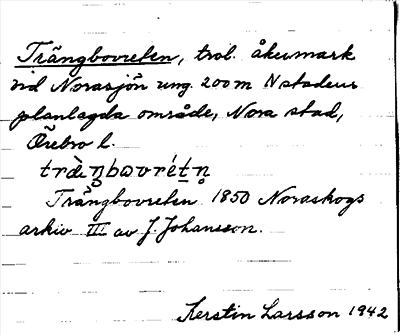 Trängbovreten, trol. åkermark
vid Norasjön ung. 200 m N stadens
planlagda område, Nora stad,
Örebro l.
Trängbovreten 1850 Noraskogs
arkiv III av J. Johansson.
Kerstin Larsson 1942